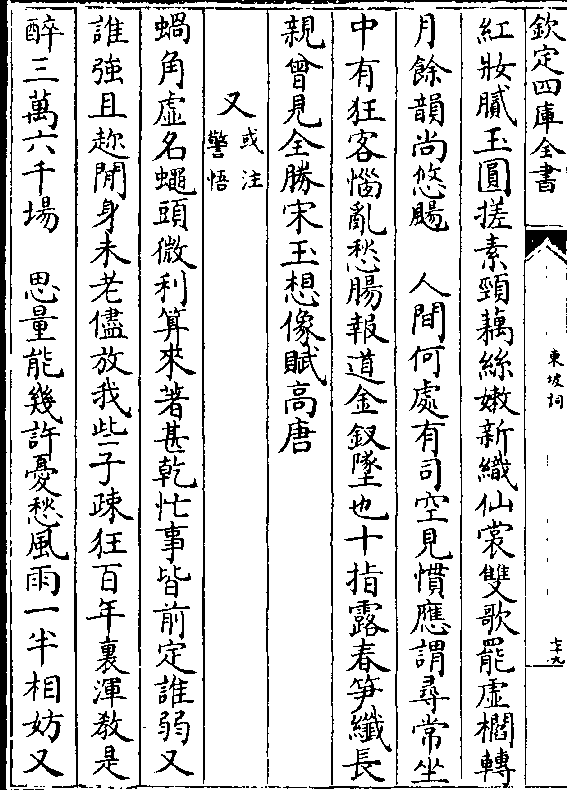 欽定四庫全書
東坡詞
七十九
紅妝膩玉圓搓素頸藕絲嫩新織仙裳雙歌罷虛櫩轉
月餘韻尚悠颺　人間何處有司空見慣應謂尋常坐
中有狂客惱亂愁腸報道金釵墜也十指露春笋纖長
親曾見全勝宋玉想像賦高唐
又或注警悟
蝸角虛名蠅頭微利算來著甚乾忙事皆前定誰弱又
誰強且趂閒身未老儘放我些子疎狂百年裏渾教是
醉三萬六千場　思量能幾許憂愁風雨一半相妨又